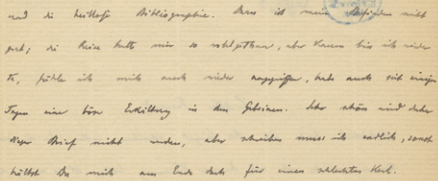 und die heillose Bibliographie. Dann ist mein Befinden nicht
gut; die Reise hatte mir so wohlgethan, aber kaum bin ich wieder
da, fühle ich mich auch wieder angegriffen, habe auch seit einigen
Tagen eine böse Erkältung in den Gebeinen. Sehr schön wird daher
dieser Brief nicht werden, aber schreiben muss ich endlich, sonst
hältst Du mich am Ende doch für einen schlechten Kerl.